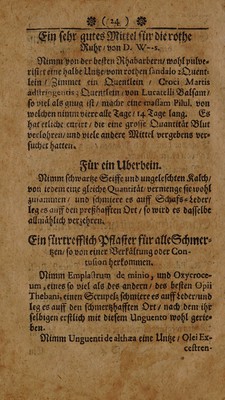 ( 24 )
Ein sehr gutes Mittel für die rothe
Ruhr / von D. W--s.
Nimm von der besten Rhabarbern / wohl pulve-
risirt eine halbe Untze / vom rothen sandalo 2 Quent-
lein / Zimmet ein Quentlein / Croci Martis
adstringentis 1 Quentlein / von Lucatelli Balsam /
so viel als gnug ist / mache eine massam Pilul. von
welchen nimm viere alle Tage / 14 Tage lang. Es
hat etliche curirt / die eine grosse Quantität Blut
verlohren / und viele andere Mittel vergebens ver-
suchet hatten.
Für ein Uberbein.
Nimm schwartze Seiffe und ungeleschten Kalch /
von jedem eine gleiche Quantität / vermenge sie wohl
zusammen / und schmiere es auff Schafs-Leder /
leg es auff den preßhafften Ort / so wird es dasselbe
allmählich verzehren.
Ein fürtrefflich Pflaster für alle Schmer-
tzen / so von einer Verkältung oder Con-
tusion herkommen.
Nimm Emplastrum de minio, und Oxycroce-
um, eines so viel als des andern / des besten Opii
Thebani, einen Scrupel / schmiere es auff Leder / und
leg es auff den schmertzhafften Ort / nach dem ihr
selbigen erstlich mit diesem Unguento wohl gerie-
ben.
Nimm Unguenti de althæa eine Untze / Olei Ex-
cestren-